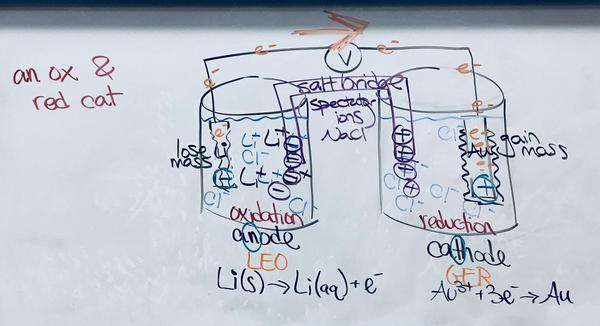 an ox &
red cat
e⁻ e⁻
V
e⁻ e⁻
salt bridge
spectator
ions
NaCl
lose
mass
e⁻
Li
Li⁺ Li⁺
Cl⁻
Li⁺ Li⁺
Cl⁻
Cl⁻ Cl⁻
Cl⁻
e⁻
e⁻
Au
gain
mass
Cl⁻
Cl⁻
Cl⁻ Cl⁻
oxidation
anode
LEO
Li(s)→Li(aq)+e⁻
reduction
cathode
GER
Au³⁺+3e⁻→Au